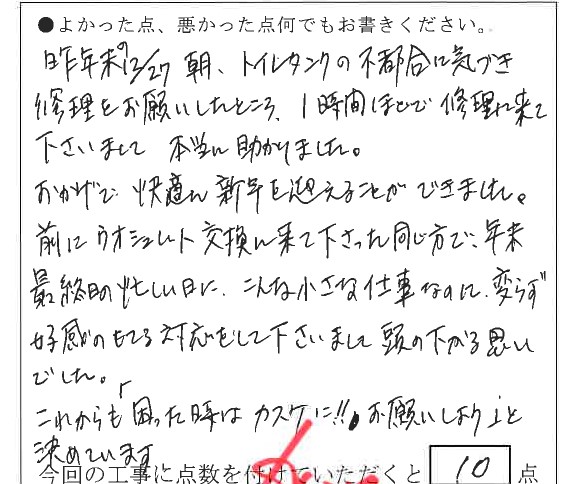 ●よかった点、悪かった点何でもお書きください。
昨年末の12/27 朝、トイレタンクの不都合に気づき
修理をお願いしたところ、1時間ほどで修理に来て
下さいまして 本当に助かりました。
おかげで 快適に新年を迎えることができました。
前にウオシュレット交換に来て下さった同じ方で、年末
最終日の忙しい日に、こんな小さな仕事なのに、変らず
好感のもてる対応をして下さいまして頭の下がる思い
でした。
これからも「困った時はカスケに!!」お願いしようと
決めています。
今回の工事に点数を付けていただくと 10 点